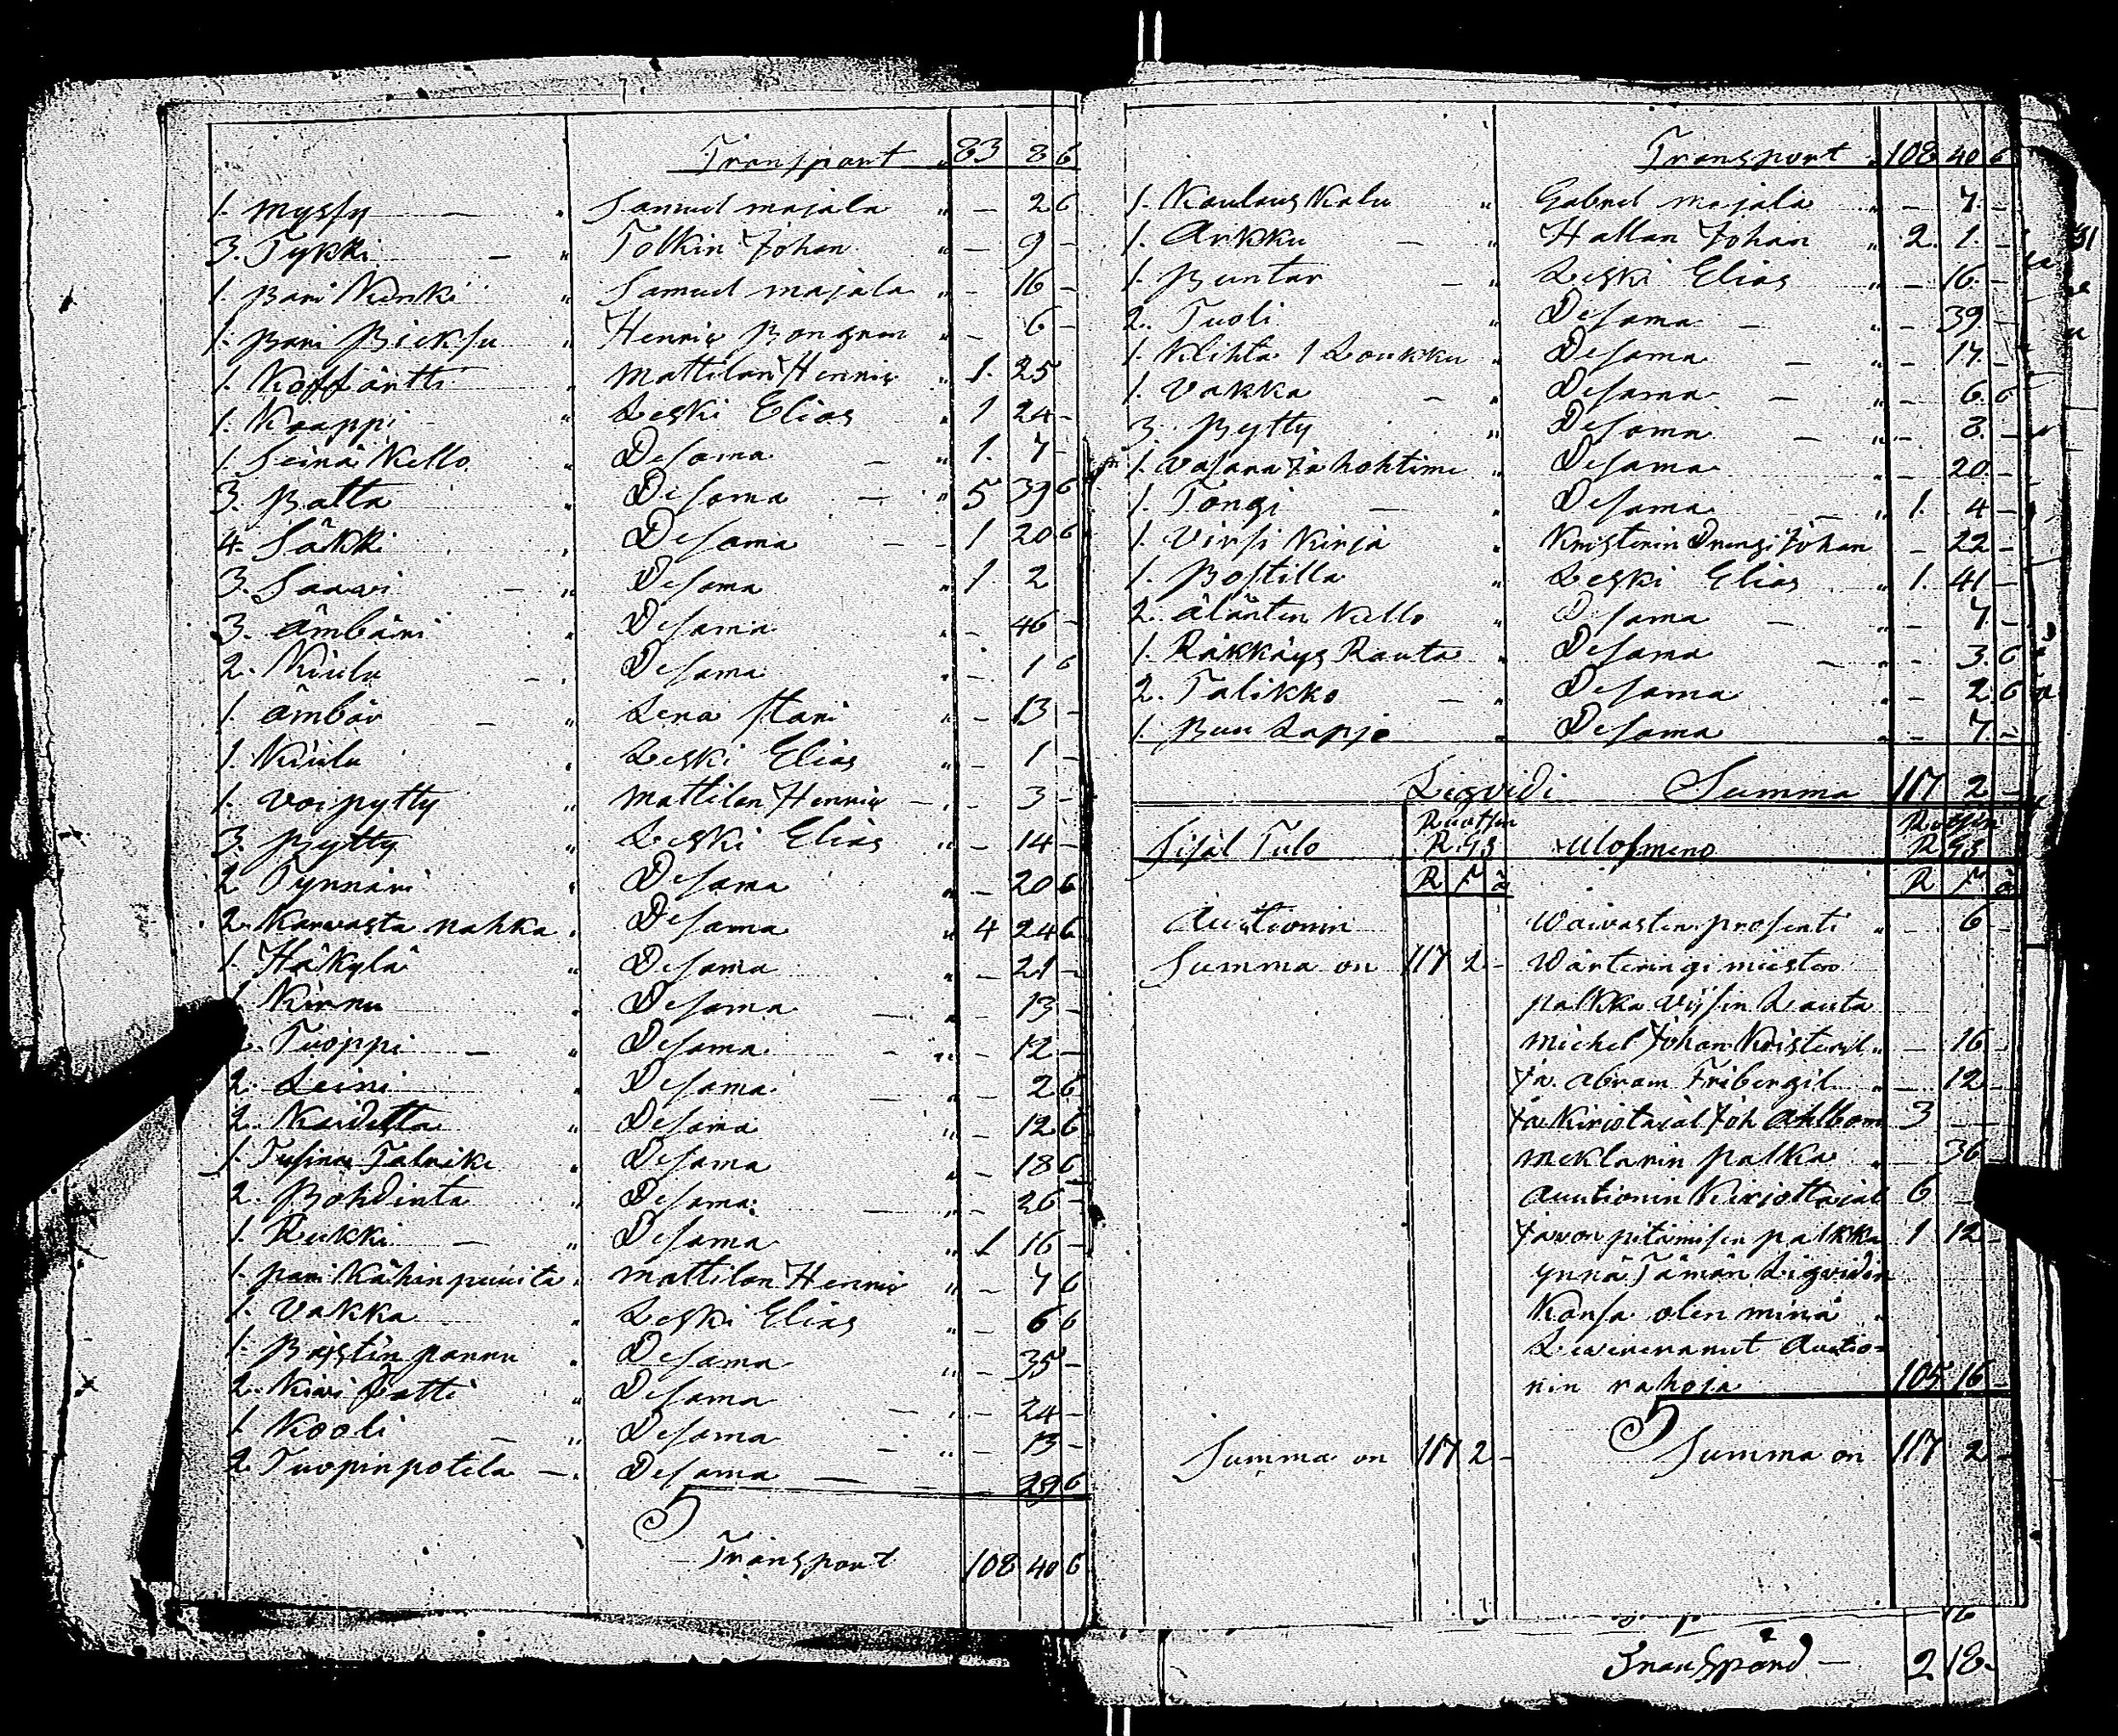 Transport " 83 8 6
1. myssy — " Samuel majala " — 2 6
3. Tykki — " Tolkin Johan " — 9 —
1. pari Kenki " Samuel majala " — 16 —
1. pari Bicksu " Henric Bongman " — 6 —
1. Koffärtti " Mattilan Henric " 1. 25
1. Kaappi " Leski Elias " 1 24 —
1. Seinä Kello " DeSama — " 1. 7 —
3. Batta " DeSama — " 5 39 6
4. Säkki " DeSama — 1 20 6
3. Saavi — " DeSama " 1 2
3. ämbäri " DeSama " — 46 —
2. Kiulu — " DeSama " — 1 6
1. ämbär — " Lena Stari " — 13 —
1. Kiulu " Leski Elias " — 1 —
1. voi pytty " Mattilan Henric — " — 3 —
3. pytty " Leski Elias " — 14 —
2 Pynnäri " DeSama " — 20 6
2. Karvasta nahka " DeSama " 4 24 6
1. Häkylä " DeSama " — 21 —
1. Kirnu " DeSama — " — 13 —
Tuoppi — " DeSama — " — 12 —
2. Leini " DeSama — " — 2 6
2. Kaidetta " DeSama " — 12 6
1. Tusina Talrike " DeSama " — 18 6
2. Bohdinta " DeSama — " — 26 —
1. Rukki — " DeSama " 1 16 —
1. pari Käsinpuuita " Mattilan Henric " — 7 6
1. Vakka " Leski Elias " — 6 6
1. Baistin pannu " DeSama " — 35 —
2. Kivi Fatti " DeSama — " — 24 —
1. Kooli — " DeSama — " — 13 —
2. Tuopinpotela — " DeSama — 29 6
Transport 108 40 6
Transport " 108 40 6
1. Kaulaus Kalu " Gabriel majala " — 7 —
1. Arkku — " Hallan Johan " 2. 1. —
1. Buntar — " Leski Elias " — 16. —
2. Tuoli " DeSama — " — 39. —
1. Klihta 1 Loukku " DeSama — " — 17. —
1. Vakka — " DeSama — " — 6. 6
3. Bytty " DeSama — " — 8. —
1. Vasara Ja hohtime " DeSama " — 20. —
1. Tongi — " DeSama — " 1. 4 —
1. Virsi Kirja " Kristerin Drengi Johan — 22 —
1. Bostilla " Leski Elias " 1. 41 —
2. älänten Kello " DeSama — " — 7. —
1. Räkkäys Rauta " DeSama — " — 3. 6
2. Talikko — " DeSama " — 2 6
1. Buu Lapjo " DeSama " — 7. —
Liqvidi Summa 117 2 —
Sisäl Tulo Ruotsin R. Gs ulosmeno Ruotsin R Gs
R S ö R S ö
Auctionin Waivasten prosenti " — 6 —
Summa on 117 2 — Wärteringi miesten
palkka viisin Lauta
michel Johan Kristeril " — 16 —
Ja. abram Fribergil " — 12 —
Ja Kirjotajal Joh Ahlbom 3 — —
meklarin palka " — 36 —
Auctionin Kirjottajal 6 —
Ja von pitämisen palkka 1 12 —
ynnä Tämän Liqvidin
Kansa olen minä "
Levereranut Auctio=
nin rahoja 105 16 —
Summa on 117 2 — Summa on 117 2 —
Transpård — 2 18 —